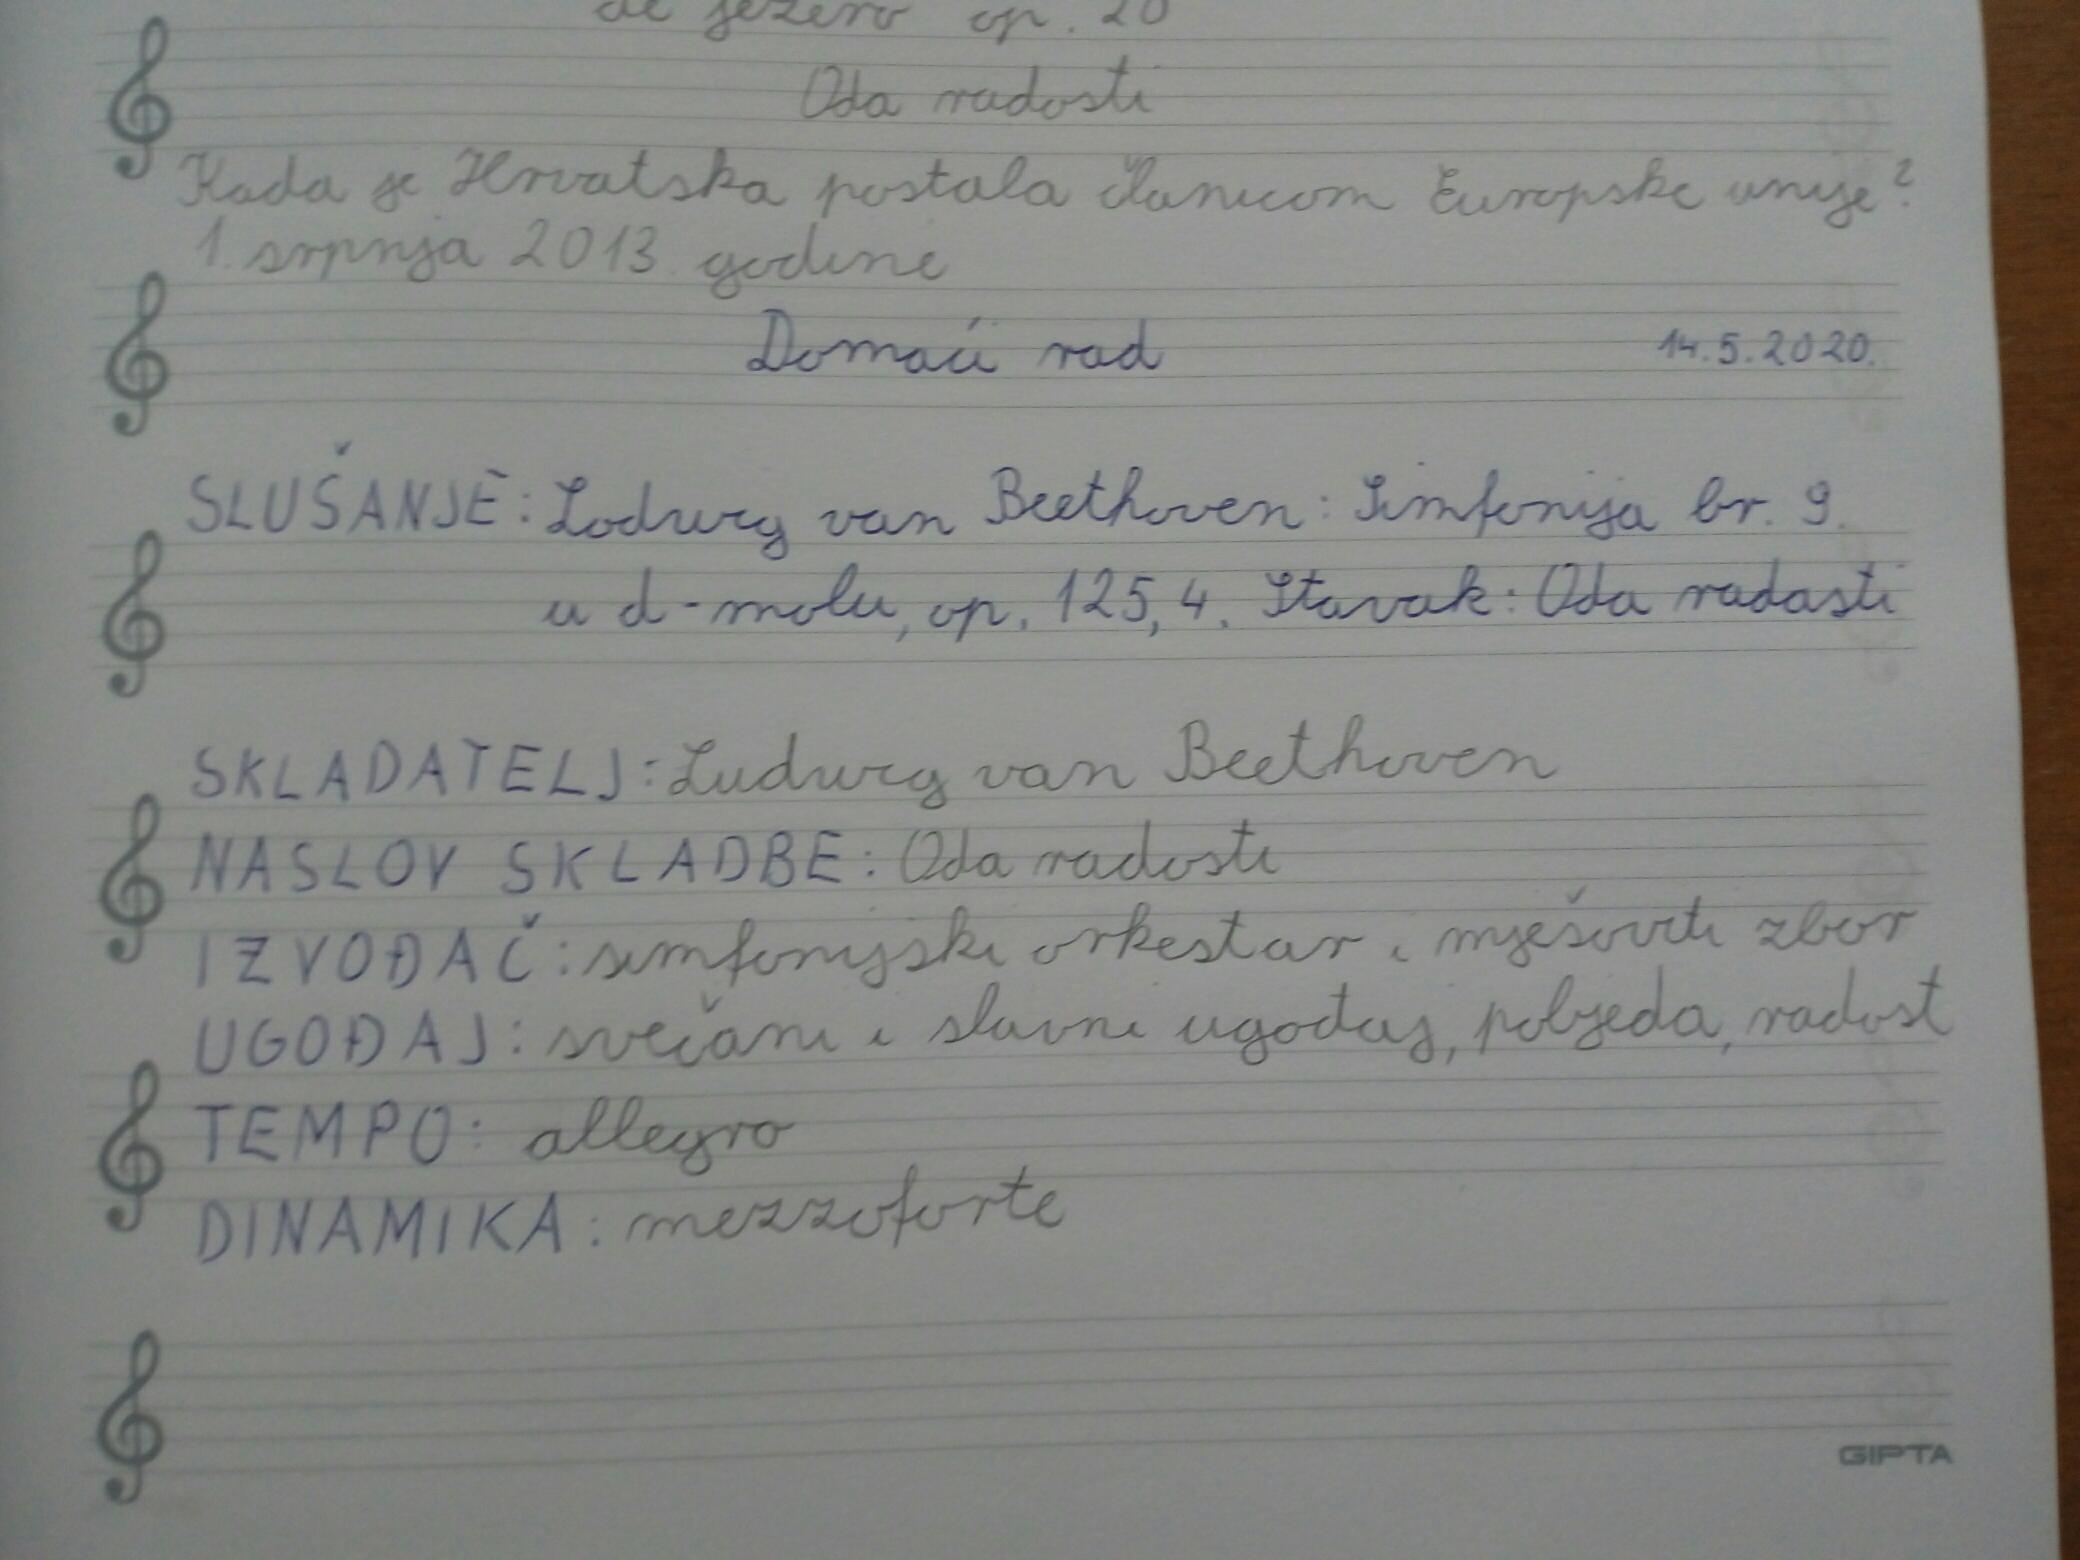 de jezero op. 20
Oda radosti
Kada je Hrvatska postala članicom Europske unije?
1. srpnja 2013. godine
Domaći rad 14.5.2020.
SLUŠANJE: Lodwig van Beethoven: Simfonija br. 9.
u d-molu, op. 125, 4. Stavak: Oda radasti
SKLADATELJ: Ludwig van Beethoven
NASLOV SKLADBE: Oda radosti
IZVOĐAČ: simfonijski orkestar i mješoviti zbor
UGOĐAJ: svečani i slavni ugođaj, pobjeda, radost
TEMPO: allegro
DINAMIKA: mezzoforte
GIPTA